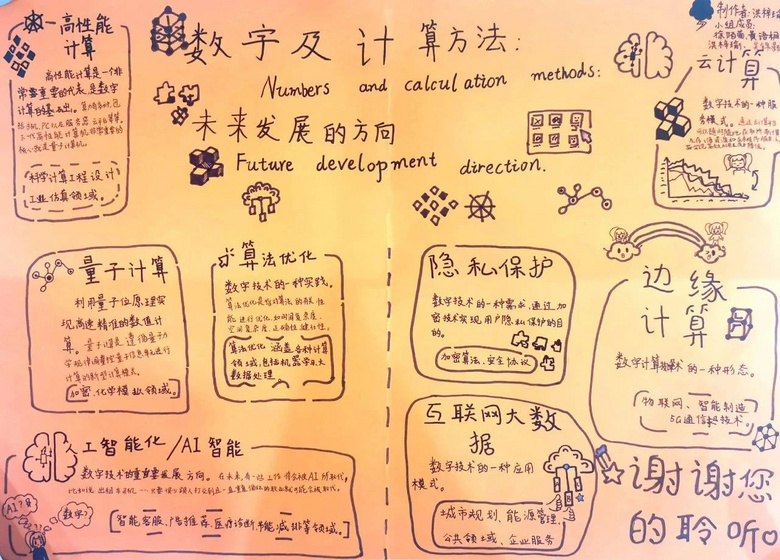 数字及计算方法：
Numbers and calculation methods:
未来发展的方向
Future development direction.
制作者：洪梓
小组成员：
高性能
计算
高性能计算是一个非
常重要的代表，是数字
计算的基础。
科学计算工程设计
工业仿真领域。
云计算
数字技术的一种服
务模式。
量子计算
利用量子位原理实
现高速精准的数值计
算。量子计算是遵循量子力
学规律调控量子信息单元进行
计算的新型计算模式。
加密、化学模拟领域。
算法优化
数字技术的一种实践。
算法优化是指对算法的有关性
能进行优化，如时间复杂度、
空间复杂度、正确性、健壮性。
算法优化涵盖各种计算
领域，包括机器学习、大
数据处理。
隐私保护
数字技术的一种需求，通过加
密技术实现用户隐私保护的目
的。
加密算法、安全协议
边缘
计算
数字计算技术的一种形态。
物联网、智能制造
5G通信技术。
人工智能化/AI智能
数字技术的重要发展方向。
智能客服、广告推荐、医疗诊断、节能减排等领域。
AI？
数字？
互联网大数
据
数字技术的一种应用
模式。
城市规划、能源管理、
公共领域、企业服务
谢谢您
的聆听。